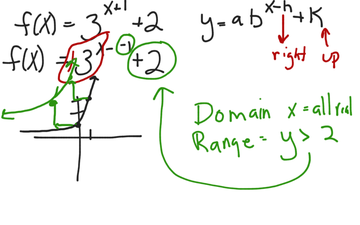 f(x) = 3^{x+1} + 2
f(x) = +3^{x - -1} + 2
y = a b^{x-h} + K
right
up
Domain x = all real
Range = y > 2